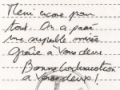 Merci encore pour
tout. On a passé
une superbe soirée
grâce à vous deux.
Bonne continuation
à vous deux !